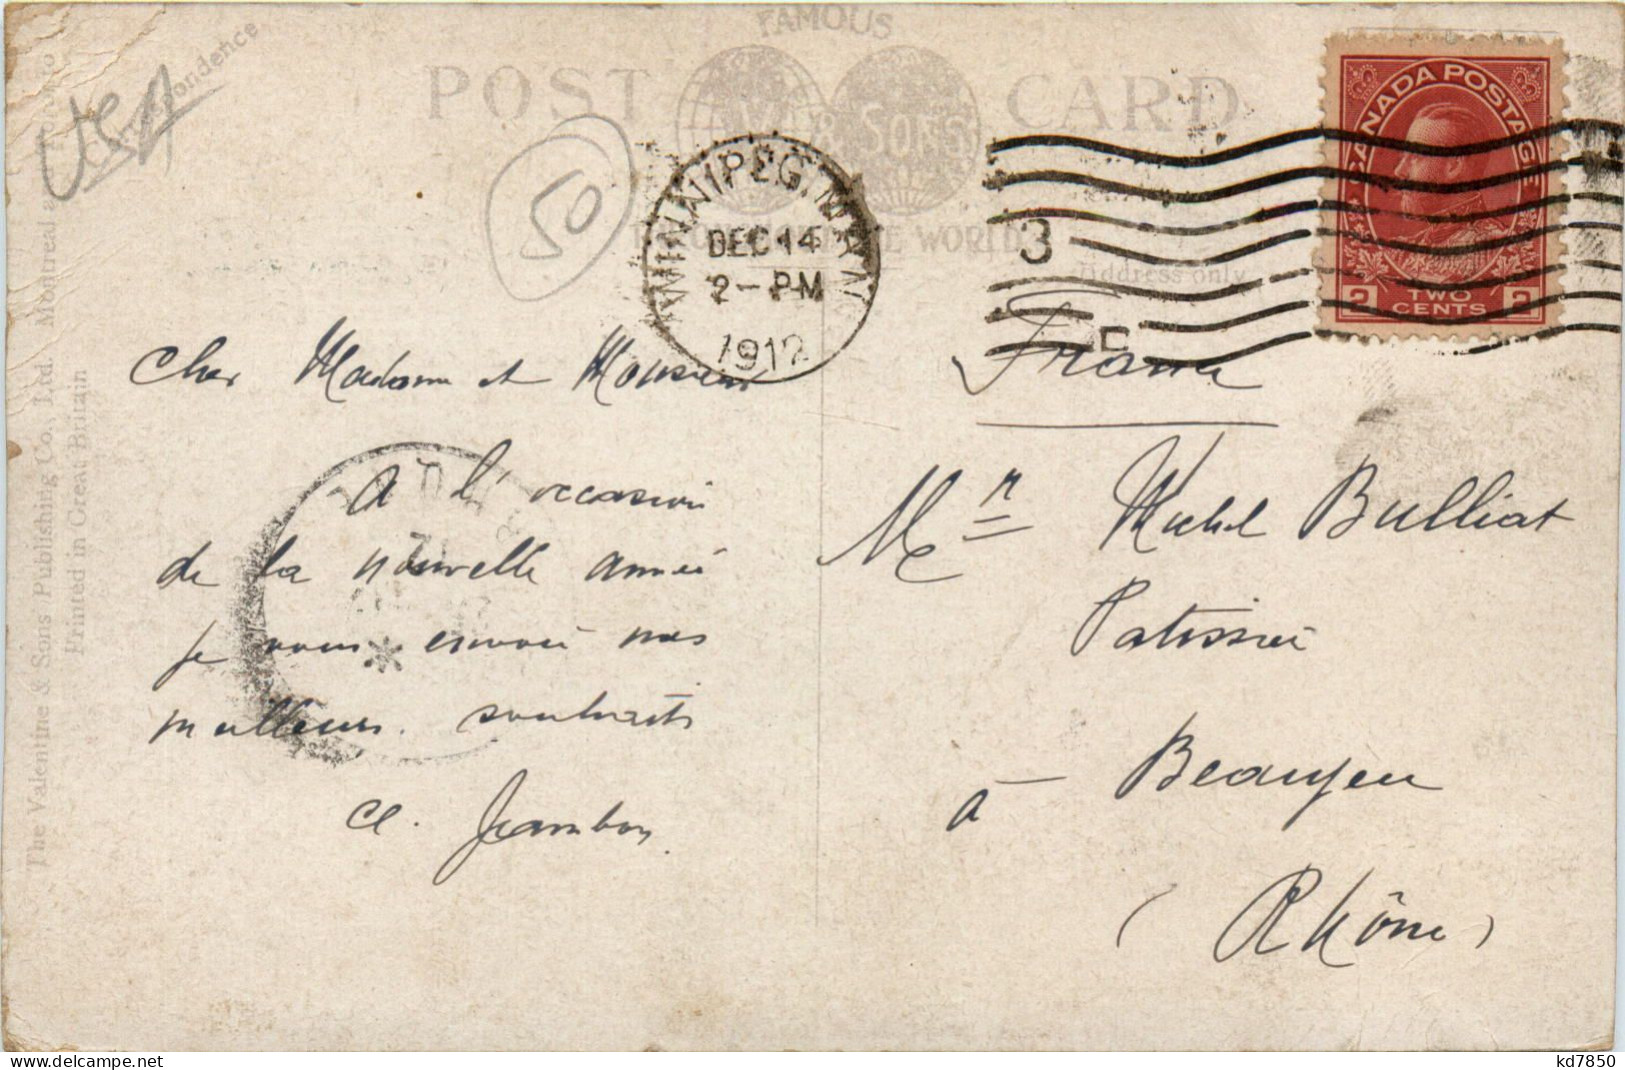 FAMOUS
POST CARD
& SONS
Correspondence
USA
50
WINNIPEG, MAN.
DEC 14
2 - PM
1912
3
THE WORLD
Address only
CANADA POSTAGE
2 TWO CENTS 2
The Valentine & Sons Publishing Co., Ltd. Montreal and Toronto
Printed in Great Britain
Cher Madame et Monsieur
A l'occasion
de la nouvelle année
je vous envoie mes
meilleurs souhaits
Cl. Jambon
France
Mr Michel Bulliat
Patissier
à Beaujeu
(Rhône)
kd7850